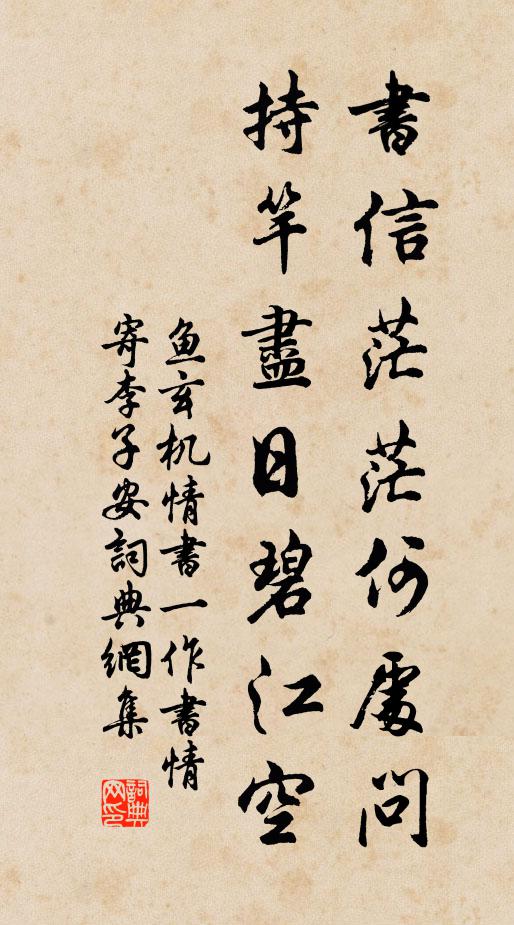 書信茫茫何處問
持竿盡日碧江空
鱼玄机情書一作書情
寄李子安詞典網集
詞典网印